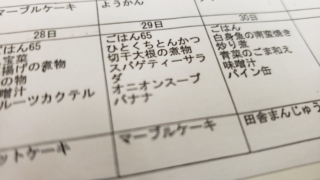 マーブルケーキ
ようかん
28日
29日
30日
ごはん65
宝菜
揚げの煮物
の物
噌汁
ルーツカクテル
ごはん65
ひとくちとんかつ
切干大根の煮物
スパゲティーサラ
ダ
オニオンスープ
バナナ
ごはん
白身魚の南蛮焼き
炒り煮
青菜のごま和え
味噌汁
パイン缶
ットケーキ
マーブルケーキ
田舎まんじゅう